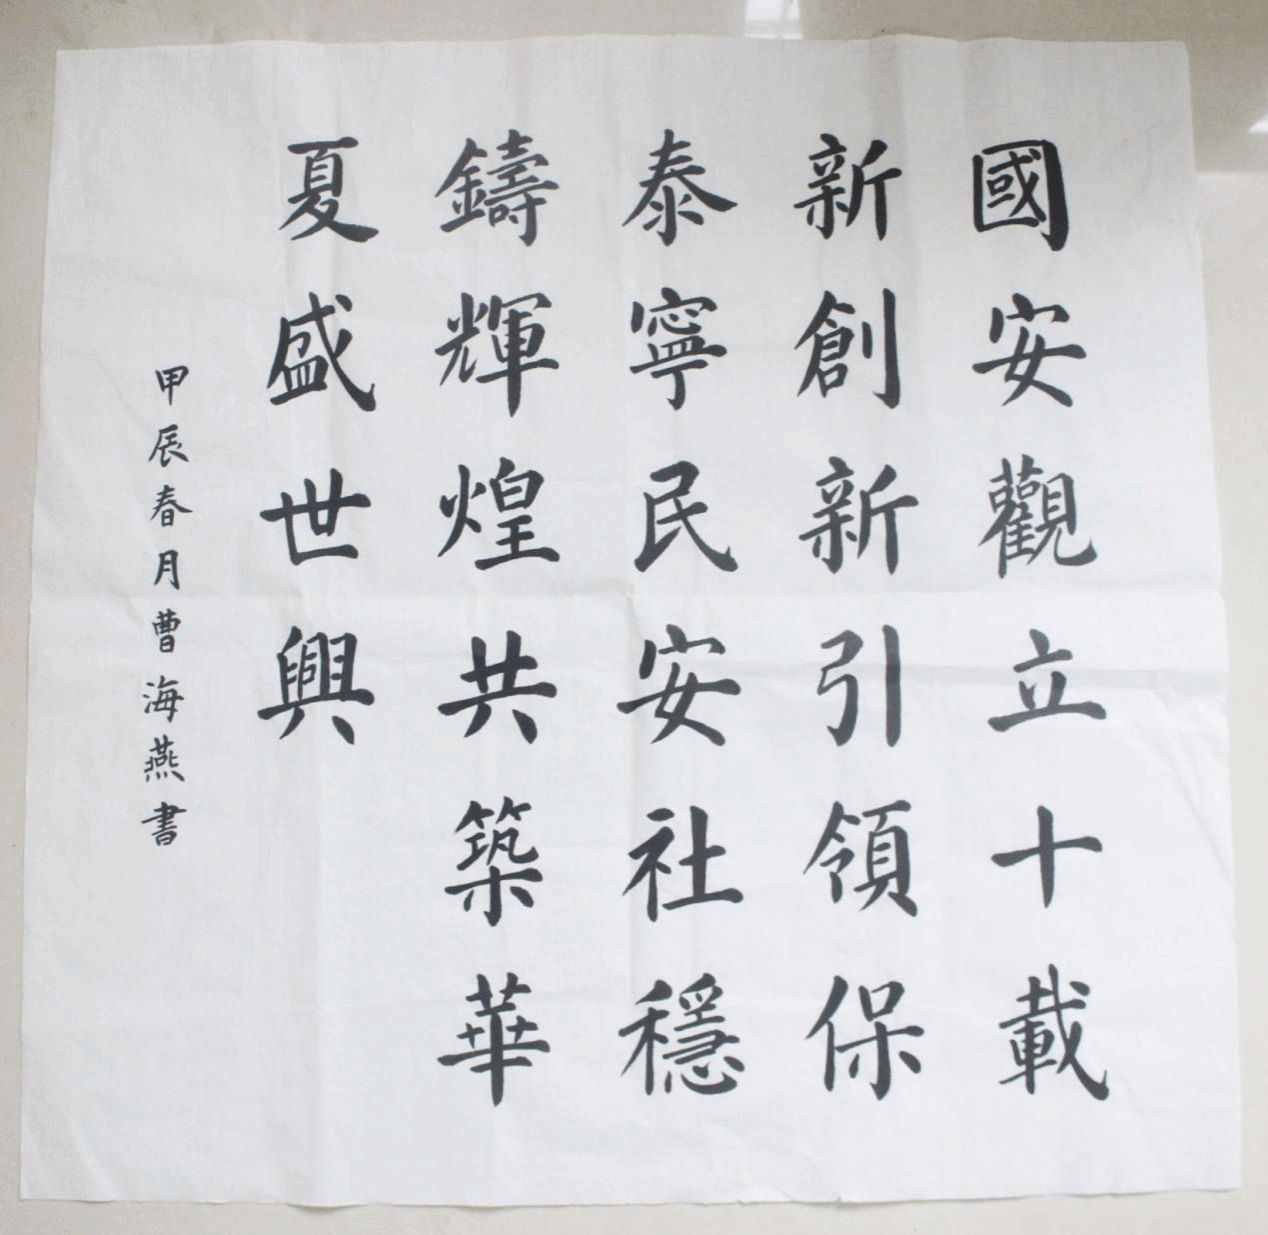 國安觀立十載
新創新引領保
泰寧民安社穩
鑄輝煌共築華
夏盛世興
甲辰春月曹海燕書